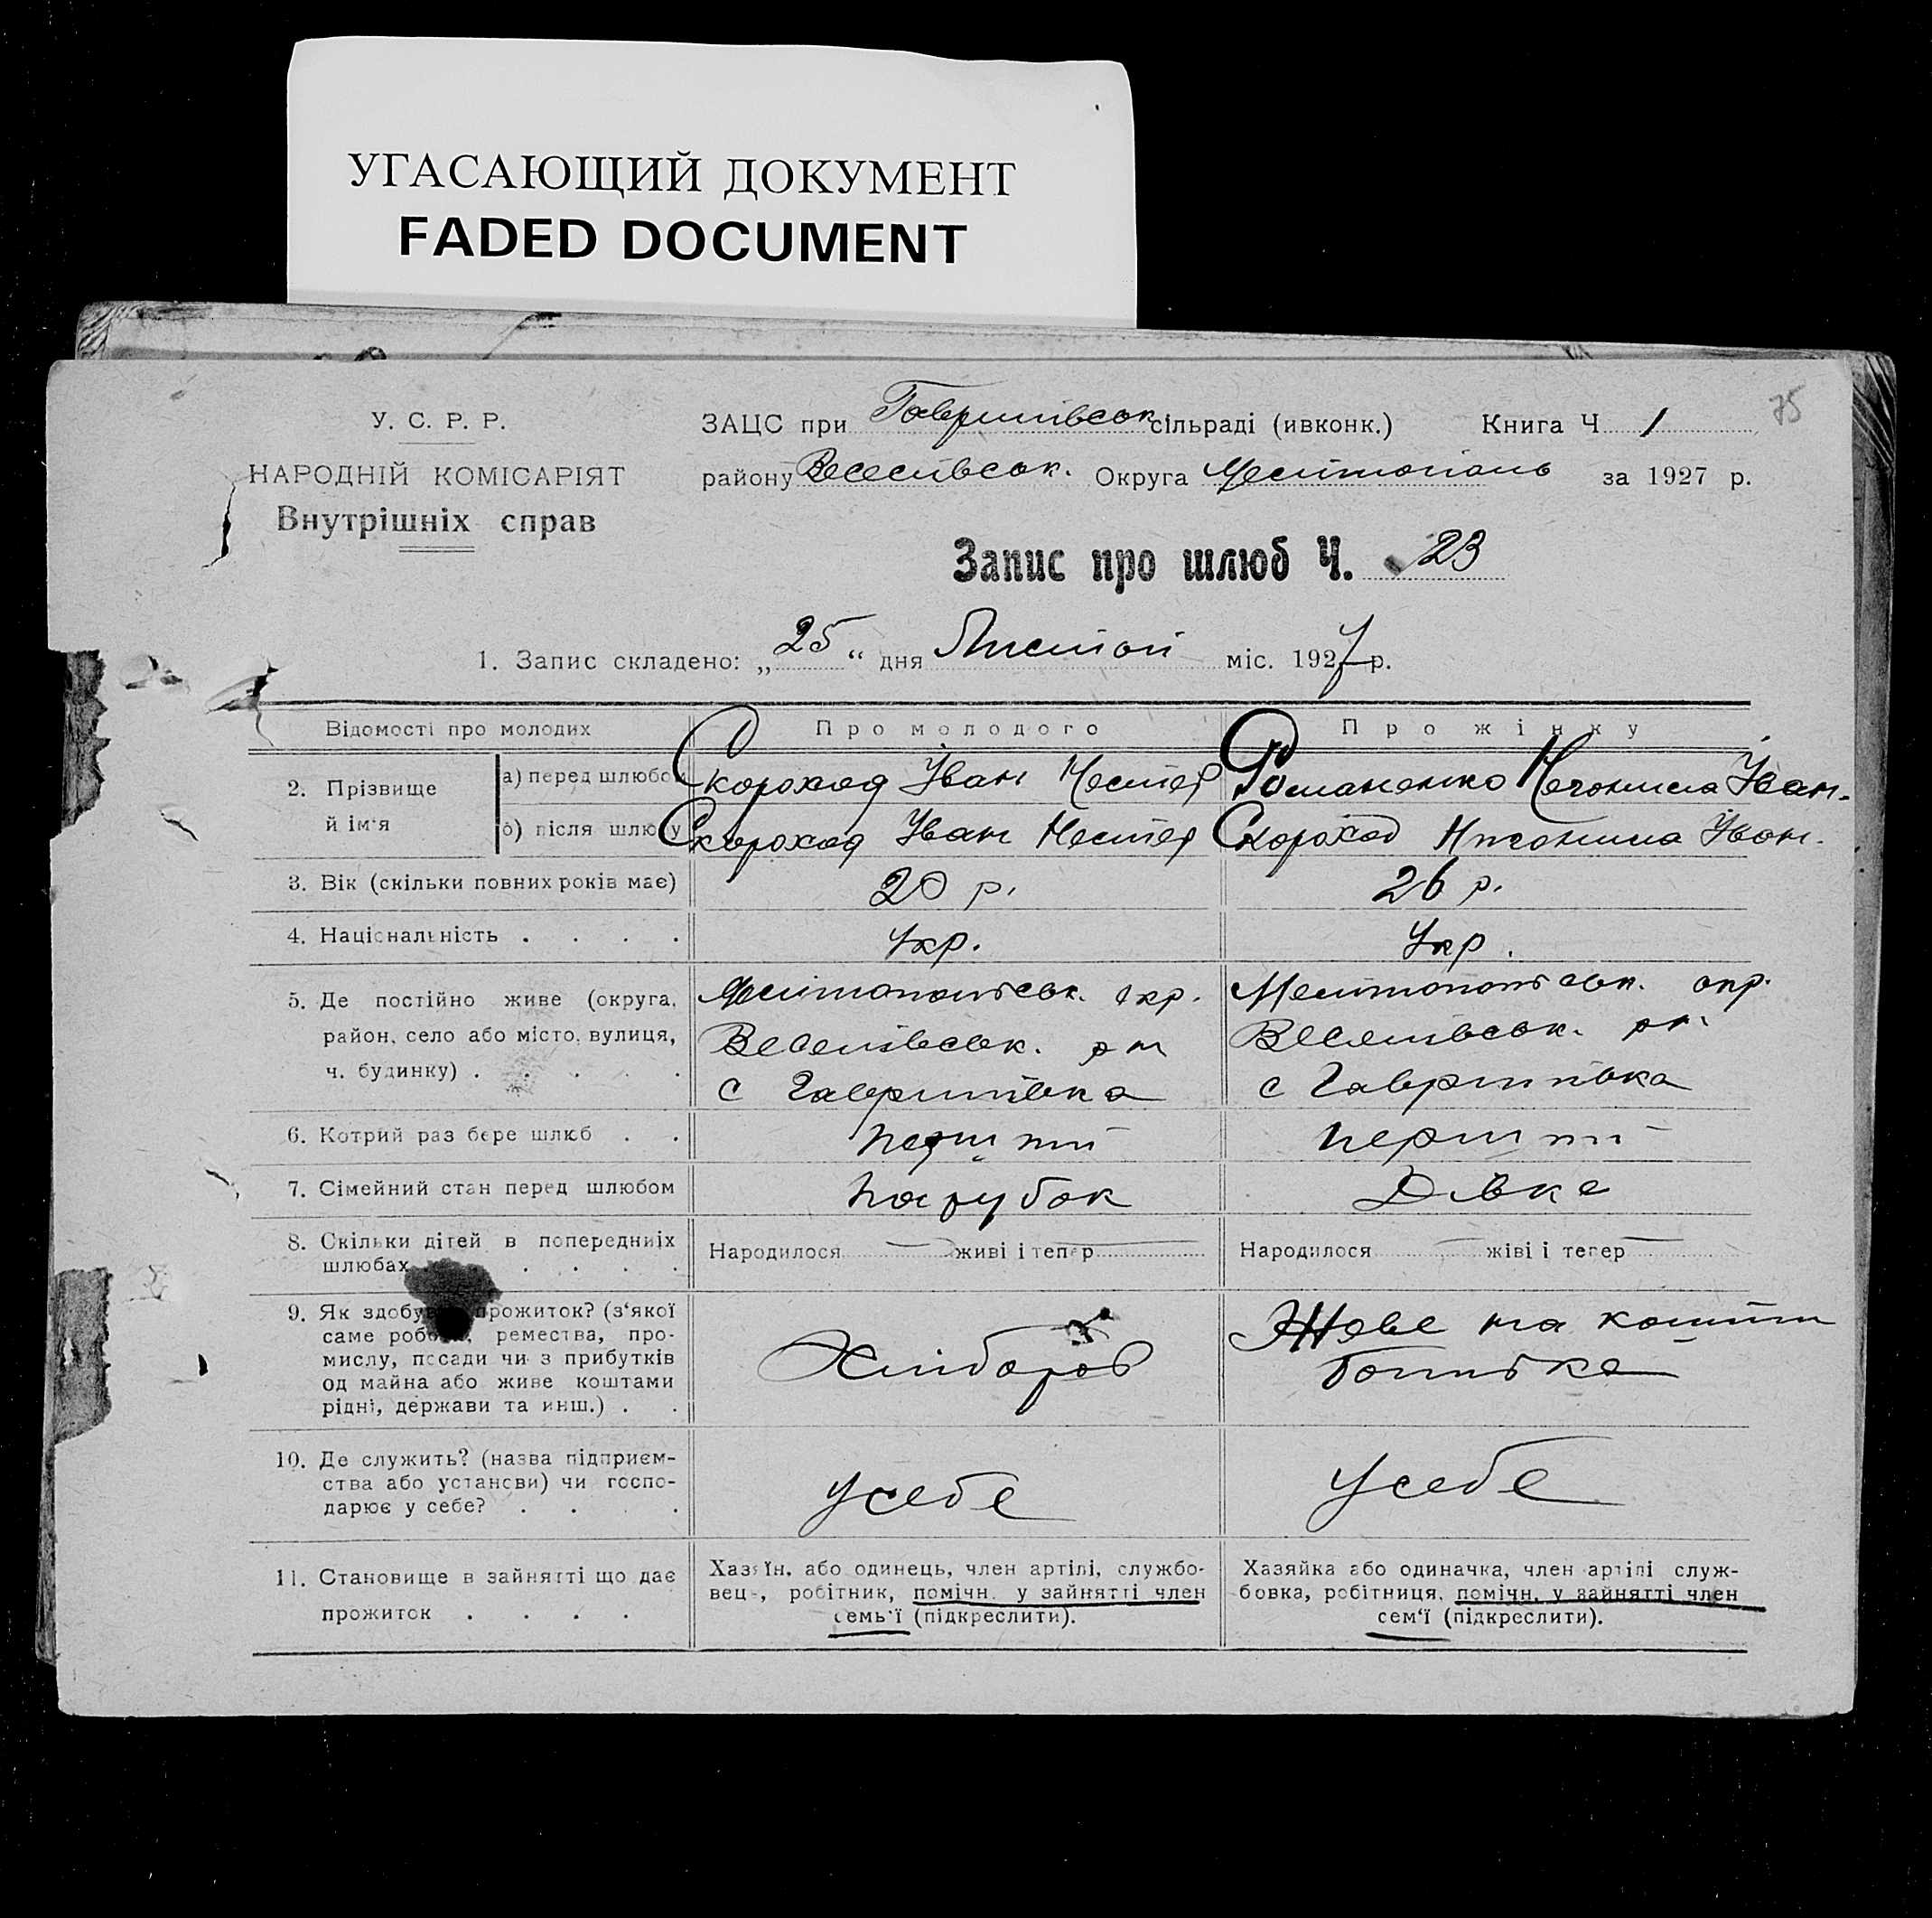 УГАСАЮЩИЙ ДОКУМЕНТ
FADED DOCUMENT
75
У. С. Р. Р.
НАРОДНІЙ КОМІСАРІЯТ
Внутрішніх справ
ЗАЦС при Гаврилівськ сільраді (ивконк.) Книга Ч 1
району Веселівськ. Округа Мелітополь за 1927 р.
Запис про шлюб Ч. 23
1. Запис складено: „25“ дня Листоп міс. 1927 р.
Відомості про молодих Про молодого Про жінку
2. Прізвище й ім‘я
а) перед шлюбом Скороход Іван Нестер Романенко Іван.
б) після шлюбу Скороход Іван Нестер Скороход Іван.
3. Вік (скільки повних років має) 20 р. 26 р.
4. Національність . . . . Укр. Укр.
5. Де постійно живе (округа, район, село або місто, вулиця, ч. будинку) . . . . .
Мелітопольськ. окр.
Веселівськ. рн
с Гаврилівка
Мелітопольськ. окр.
Веселівськ. рн.
с Гаврилівка
6. Котрий раз бере шлюб . . перший перший
7. Сімейний стан перед шлюбом парубок Дівка
8. Скільки дітей в попередніх
шлюбах . . . . Народилося — живі і тепер — Народилося — жіві і тепер —
9. Як здобуває прожиток? (з‘якої
саме роботи, ремества, про-
мислу, посади чи з прибутків
од майна або живе коштами
рідні, держави та инш.) . .
Хлібороб
Живе на кошти
батька
10. Де служить? (назва підприєм-
ства або установи) чи госпо-
дарює у себе? . . . .
усебе
усебе
11. Становище в зайнятті що дає
прожиток . . . .
Хазяїн, або одинець, член артілі, службо-
вець, робітник, помічн. у зайнятті член
семь‘ї (підкреслити).
Хазяйка або одиначка, член артілі служ-
бовка, робітниця, помічн. у зайнятті член
сем‘ї (підкреслити).